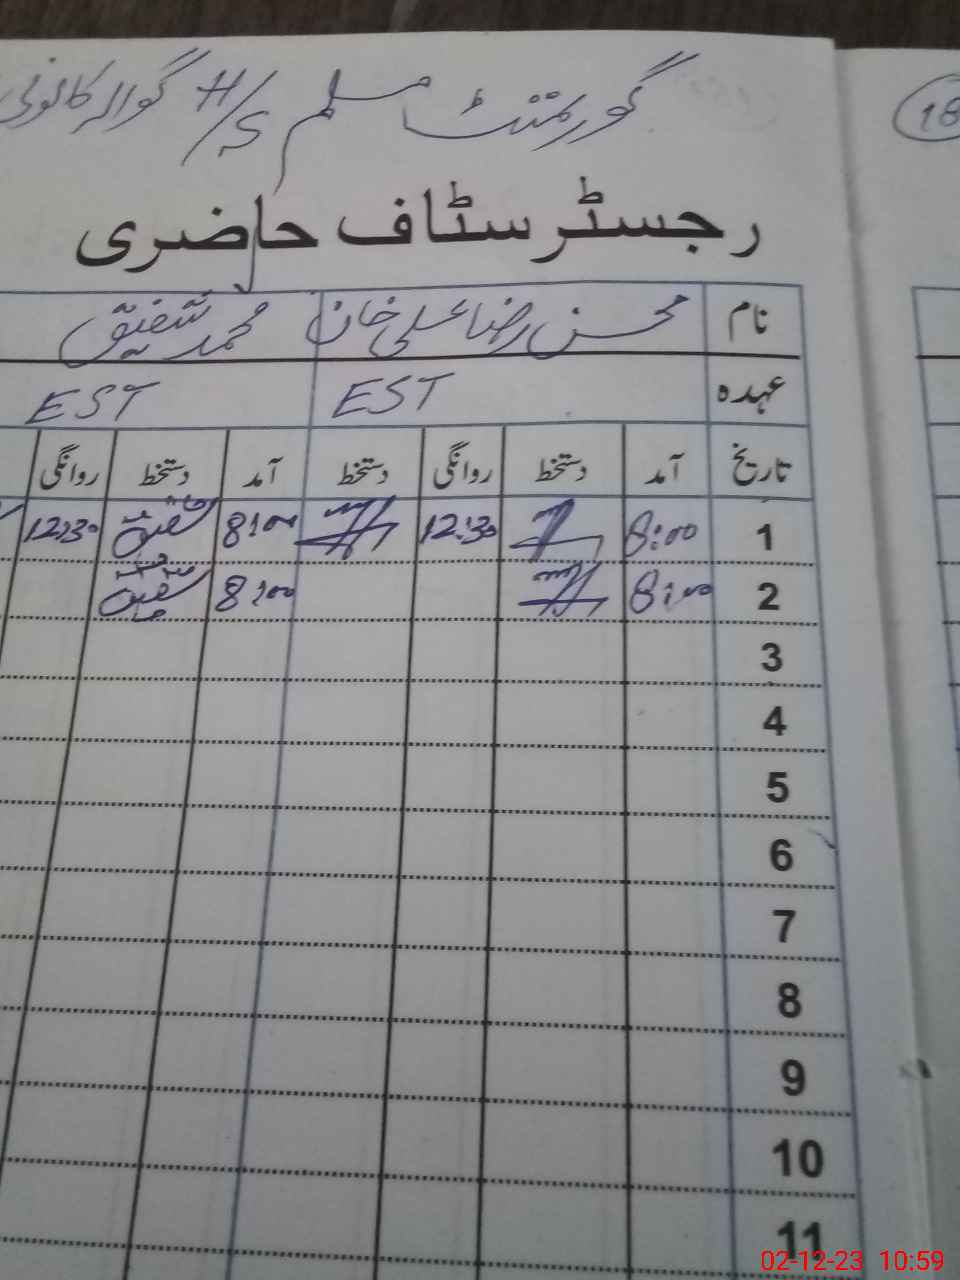 گورنمنٹ مسلم H/S گوالہ کالونی
18
رجسٹر سٹاف حاضری
نام محسن رضا علی خان محمد شفیق
عہدہ EST EST
تاریخ آمد دستخط روانگی دستخط آمد دستخط روانگی
1 8:00 12:30 8:00 شفیق 12:30
2 8:00 8:00 شفیق
3
4
5
6
7
8
9
10
11
02-12-23 10:59